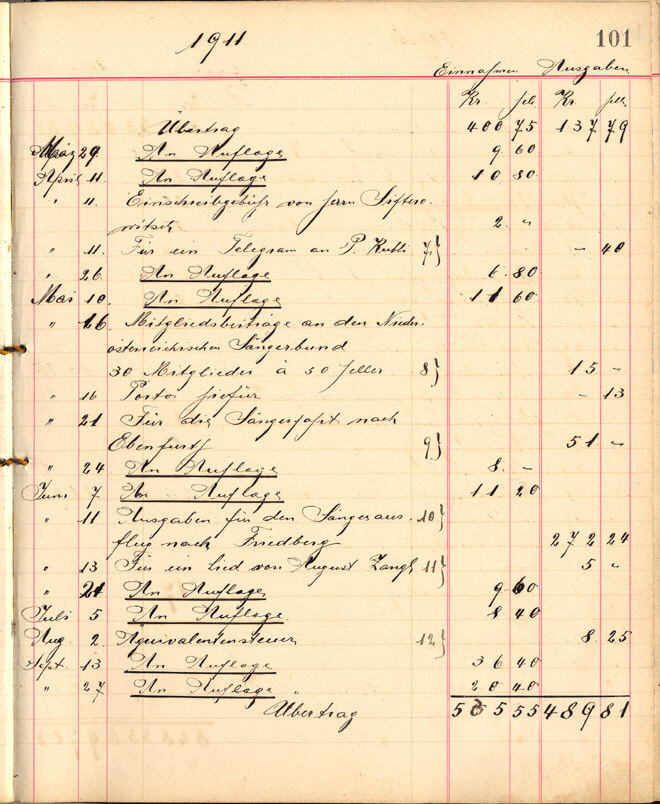 1911
101
Einnahmen Ausgaben
Kr. fels. Kr. fells.
Übertrag 400 75 137 79
März 29. An Auflage 9 60
April 11. An Auflage 10 80
" 11. Einschreibgebühr von Herrn
witsch 2. "
" 11. Für ein Telegram an P. Kubli 7} – 40
" 26 An Auflage 6. 80
Mai 10. An Auflage 11 60
" 16. Mitgliedsbeiträge an den Nieder-
österreichischen Sängerbund
30 Mitglieder à 50 Heller 8} 15 –
" 16 Portos hiefür – 13
" 21 Für die Sängerfahrt nach
Ebenfurth 9} 51 –
" 24 An Auflage 8. –
Juni 7 An Auflage 11 20
" 11 Ausgaben für den Sängeraus- 10}
flug nach Friedberg 272 24
" 13 Für ein Lied von August Zangl 11} 5 "
" 21 An Auflage 9 60
Juli 5 An Auflage 8 40
Aug. 2. Äquivalentensteuer 12} 8. 25
Sept. 13 An Auflage 36 40
" 27 An Auflage 20 40
Übertrag 535 55 489 81